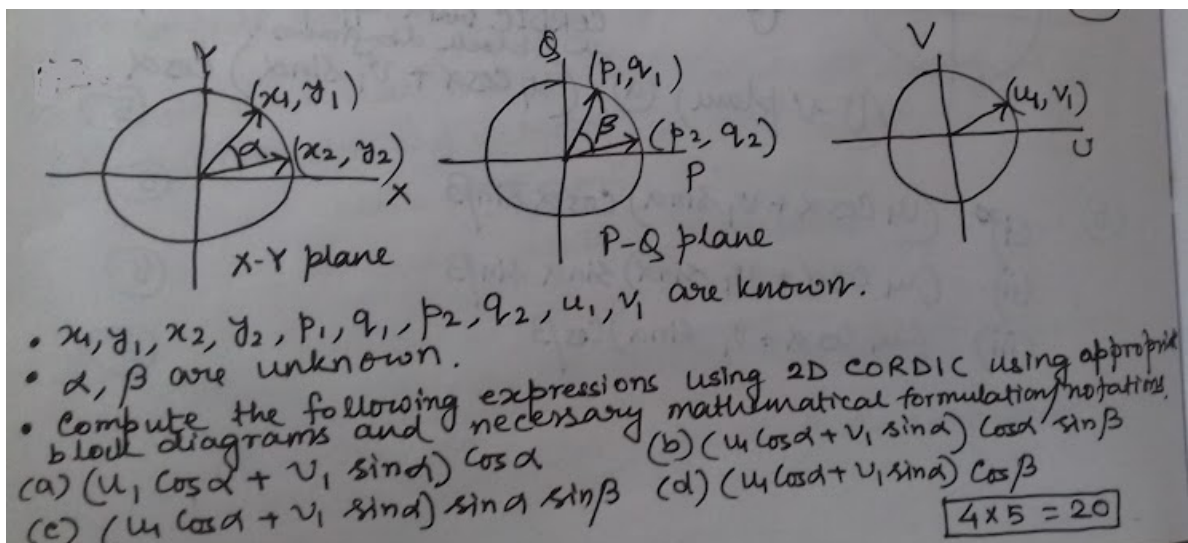 Y
(x1, y1)
α
(x2, y2)
X
X-Y plane
Q
(p1, q1)
β
(p2, q2)
P
P-Q plane
V
(u1, v1)
U
• x1, y1, x2, y2, p1, q1, p2, q2, u1, v1 are known.
• α, β are unknown.
• Compute the following expressions using 2D CORDIC using
block diagrams and necessary mathematical formulation/notations.
(a) (u1 cosα + v1 sinα) cosα (b) (u1 cosα + v1 sinα) cosα sinβ
(c) (u1 cosα + v1 sinα) sinα sinβ (d) (u1 cosα + v1 sinα) cosβ
4×5 = 20